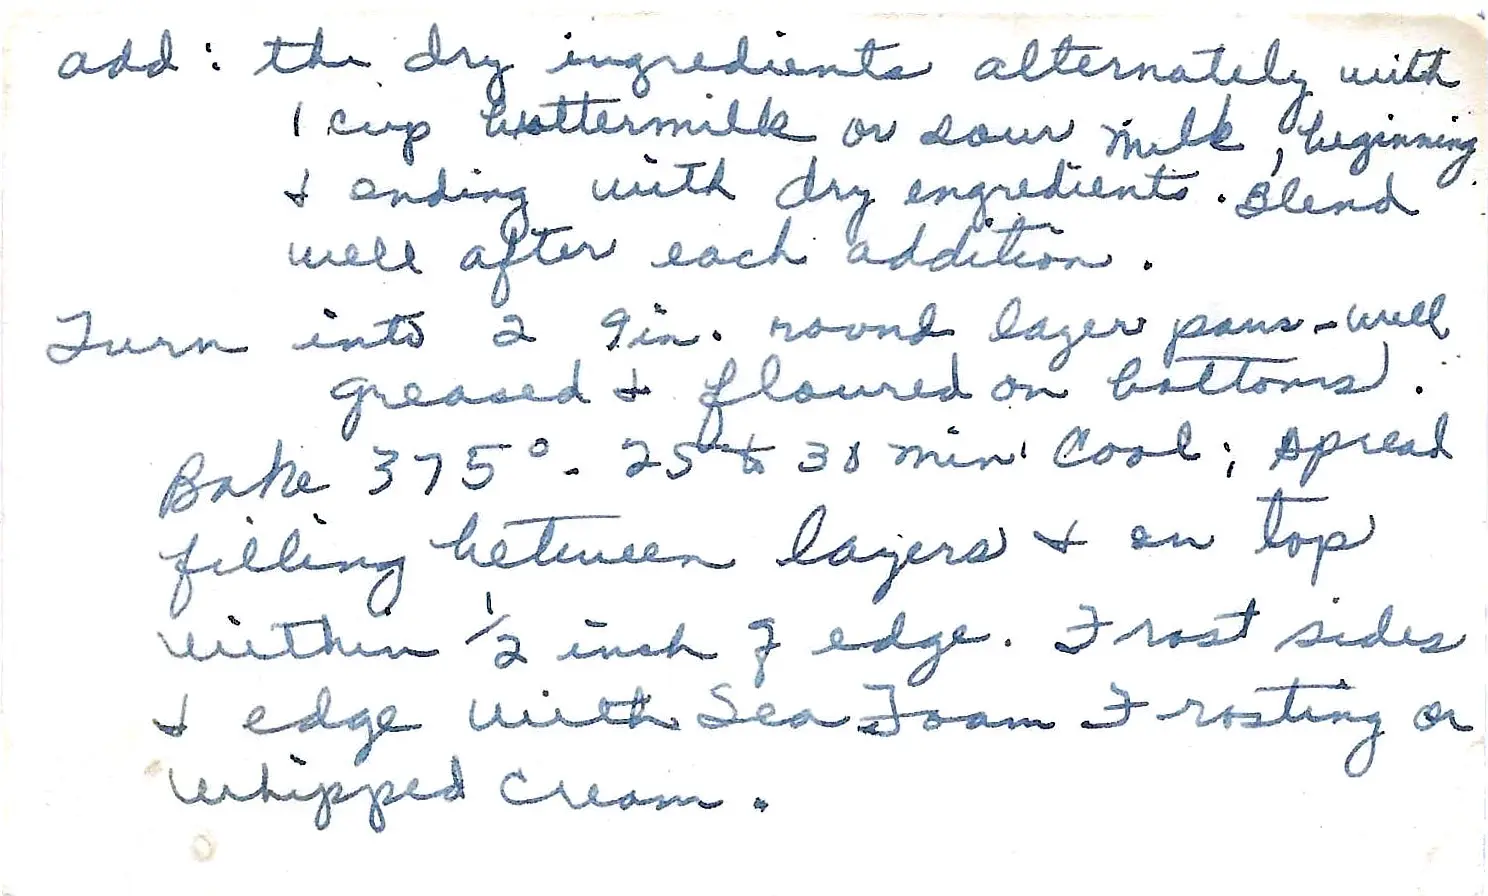 add: the dry ingredients alternately with
1 cup buttermilk or sour milk, beginning
& ending with dry engredients. Blend
well after each addition.
Turn into 2 9in. round layer pans - well
greased & floured on bottoms.
Bake 375° - 25 to 30 min. Cool; spread
filling between layers & on top
within 1/2 inch of edge. Frost sides
& edge with Sea Foam Frosting or
whipped cream.